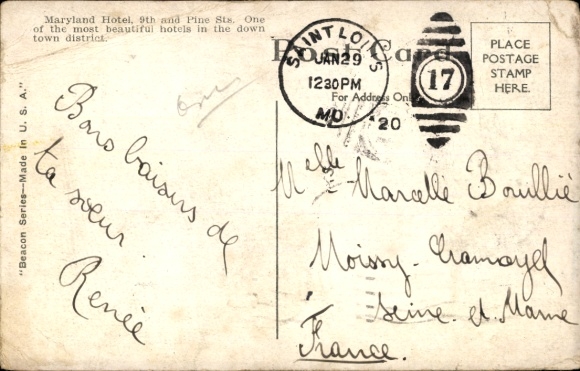 Maryland Hotel, 9th and Pine Sts. One
of the most beautiful hotels in the down
town district.
"Beacon Series—Made in U. S. A."
Bons baisers de
ta sœur
Renée
Post Card
For Address Only
SAINT LOUIS
JAN 29
12 30 PM
MO.
'20
17
PLACE
POSTAGE
STAMP
HERE.
Melle Marcelle Bouillié
Moissy-Cramayel
Seine et Marne
France.